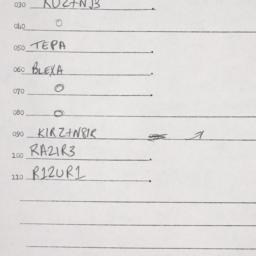 030 KUZ+NJ3
040 O
050 TEPA
060 BLEXA
070 O
080 O
090 KIRZ+NSIR
100 RAZIR3
110 RIZUR1